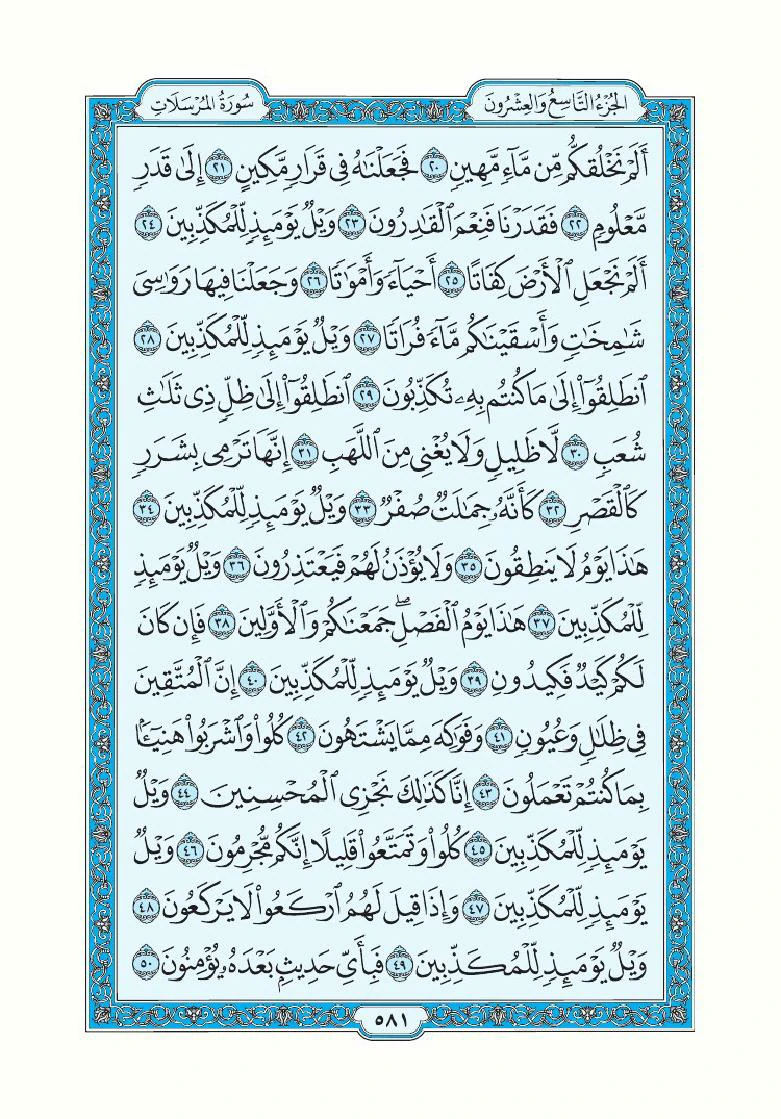 الجُزْءُ التَّاسِعُ وَالعِشْرُونَ
سُورَةُ المُرْسَلَاتِ
أَلَمۡ نَخۡلُقكُّم مِّن مَّآءٖ مَّهِينٖ ٢٠ فَجَعَلۡنَٰهُ فِي قَرَارٖ مَّكِينٍ ٢١ إِلَىٰ قَدَرٖ
مَّعۡلُومٖ ٢٢ فَقَدَرۡنَا فَنِعۡمَ ٱلۡقَٰدِرُونَ ٢٣ وَيۡلٞ يَوۡمَئِذٖ لِّلۡمُكَذِّبِينَ ٢٤
أَلَمۡ نَجۡعَلِ ٱلۡأَرۡضَ كِفَاتًا ٢٥ أَحۡيَآءٗ وَأَمۡوَٰتٗا ٢٦ وَجَعَلۡنَا فِيهَا رَوَٰسِيَ
شَٰمِخَٰتٖ وَأَسۡقَيۡنَٰكُم مَّآءٗ فُرَاتٗا ٢٧ وَيۡلٞ يَوۡمَئِذٖ لِّلۡمُكَذِّبِينَ ٢٨
ٱنطَلِقُوٓاْ إِلَىٰ مَا كُنتُم بِهِۦ تُكَذِّبُونَ ٢٩ ٱنطَلِقُوٓاْ إِلَىٰ ظِلّٖ ذِي ثَلَٰثِ
شُعَبٖ ٣٠ لَّا ظَلِيلٖ وَلَا يُغۡنِي مِنَ ٱللَّهَبِ ٣١ إِنَّهَا تَرۡمِي بِشَرَرٖ
كَٱلۡقَصۡرِ ٣٢ كَأَنَّهُۥ جِمَٰلَتٞ صُفۡرٞ ٣٣ وَيۡلٞ يَوۡمَئِذٖ لِّلۡمُكَذِّبِينَ ٣٤
هَٰذَا يَوۡمُ لَا يَنطِقُونَ ٣٥ وَلَا يُؤۡذَنُ لَهُمۡ فَيَعۡتَذِرُونَ ٣٦ وَيۡلٞ يَوۡمَئِذٖ
لِّلۡمُكَذِّبِينَ ٣٧ هَٰذَا يَوۡمُ ٱلۡفَصۡلِۖ جَمَعۡنَٰكُمۡ وَٱلۡأَوَّلِينَ ٣٨ فَإِن كَانَ
لَكُمۡ كَيۡدٞ فَكِيدُونِ ٣٩ وَيۡلٞ يَوۡمَئِذٖ لِّلۡمُكَذِّبِينَ ٤٠ إِنَّ ٱلۡمُتَّقِينَ
فِي ظِلَٰلٖ وَعُيُونٖ ٤١ وَفَوَٰكِهَ مِمَّا يَشۡتَهُونَ ٤٢ كُلُواْ وَٱشۡرَبُواْ هَنِيٓـَٔۢا
بِمَا كُنتُمۡ تَعۡمَلُونَ ٤٣ إِنَّا كَذَٰلِكَ نَجۡزِي ٱلۡمُحۡسِنِينَ ٤٤ وَيۡلٞ
يَوۡمَئِذٖ لِّلۡمُكَذِّبِينَ ٤٥ كُلُواْ وَتَمَتَّعُواْ قَلِيلًا إِنَّكُم مُّجۡرِمُونَ ٤٦ وَيۡلٞ
يَوۡمَئِذٖ لِّلۡمُكَذِّبِينَ ٤٧ وَإِذَا قِيلَ لَهُمُ ٱرۡكَعُواْ لَا يَرۡكَعُونَ ٤٨
وَيۡلٞ يَوۡمَئِذٖ لِّلۡمُكَذِّبِينَ ٤٩ فَبِأَيِّ حَدِيثِۭ بَعۡدَهُۥ يُؤۡمِنُونَ ٥٠
٥٨١